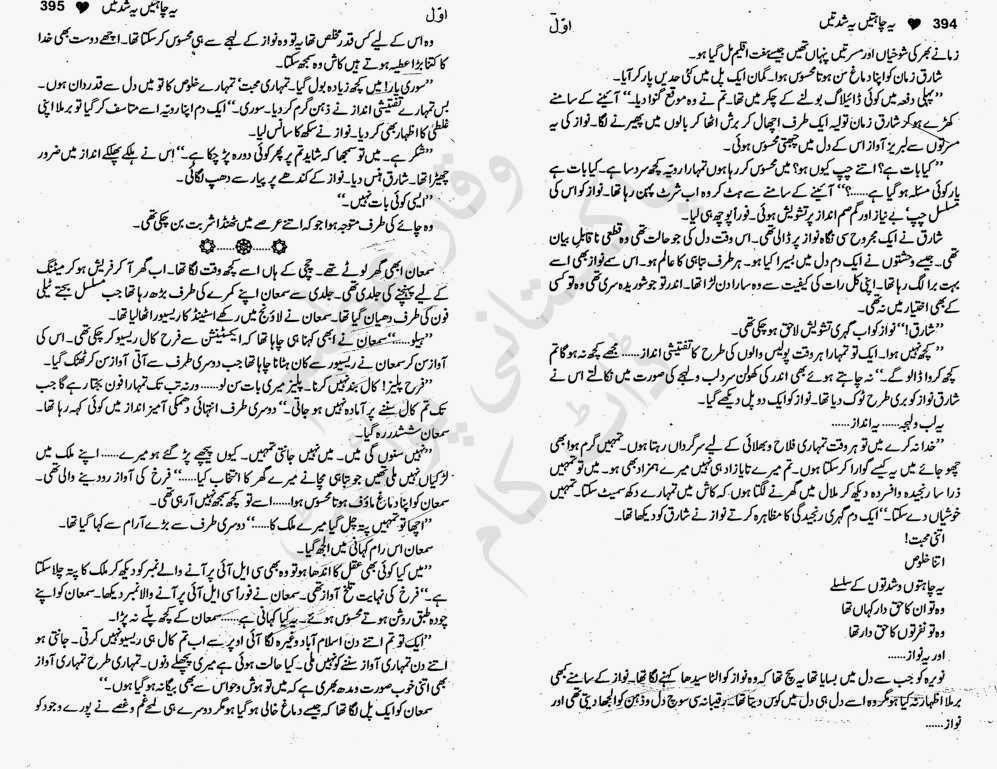 394 ♥ یہ چاہتیں یہ شدتیں اوّل
زمانے بھر کی شوخیاں اور مسرتیں پنہاں تھیں جیسے ہفت اقلیم مل گیا ہو۔
شارق زمان کو اپنا دماغ سن ہوتا محسوس ہوا۔ گمان ایک پل میں کئی حدیں پار کر آیا۔
”پہلی دفعہ میں کوئی ڈائیلاگ بولنے کے چکر میں تھا۔ تم نے وہ موقع گنوا دیا۔“ آئینے کے سامنے
کھڑے ہو کر شارق زمان تولیہ ایک طرف اچھال کر برش اٹھا کر بالوں میں پھیرنے لگا۔ نواز کی یہ
مسرتوں سے لبریز آواز اس کے دل میں چبھتی محسوس ہوئی۔
”کیا بات ہے؟ اتنے چپ کیوں ہو؟ میں محسوس کر رہا ہوں تمہارا رویہ کچھ سرد سا ہے۔ کیا بات ہے
یار کوئی مسئلہ ہو گیا ہے......؟“ آئینے کے سامنے سے ہٹ کر وہ اب شرٹ پہن رہا تھا۔ نواز کو اس کی
مسلسل چپ‘ بے نیاز اور گم صم انداز پر تشویش ہوئی۔ فوراً پوچھ ہی لیا۔
شارق نے ایک مجروح سی نگاہ نواز پر ڈالی تھی۔ اس وقت دل کی جو حالت تھی وہ قطعی ناقابل بیان
تھی۔ جیسے وحشتوں نے ایک دم دل میں بسیرا کیا ہو۔ ہر طرف تباہی کا عالم ہو۔ اس سے نواز بھی اسے
بہت برا لگ رہا تھا۔ اپنی کل رات کی کیفیت سے وہ سارا دن لڑا تھا۔ اندر تو جو شوریدہ سری تھی وہ تو کسی
کے بھی اختیار میں نہ تھی۔
”شارق!“ نواز کو اب گہری تشویش لاحق ہو چکی تھی۔
”کچھ نہیں ہوا۔ ایک تو تمہارا ہر وقت پولیس والوں کی طرح کا تفتیشی انداز...... مجھے کچھ نہ ہو گا تم
کچھ کروا ڈالو گے۔“ نہ چاہتے ہوئے بھی اندر کی کھولن سرد لب و لہجے کی صورت میں نکالتے اس نے
شارق نواز کو بری طرح ٹوک دیا تھا۔ نواز کو ایک دو پل دیکھے گیا۔
یہ لب و لہجہ...... یہ انداز......
”خدا نہ کرے میں تو ہر وقت تمہاری فلاح و بھلائی کے لیے سرگرداں رہتا ہوں۔ تمہیں گرم ہوا بھی
چھو جائے میں یہ کیسے گوارا کر سکتا ہوں۔ تم میرے تایا زاد ہی نہیں میرے ہمزاد بھی ہو۔ میں تو تمہیں
ذرا سا رنجیدہ و افسردہ دیکھ کر ملال میں گھرنے لگتا ہوں کہ کاش میں تمہارے دکھ سمیٹ سکتا۔ تمہیں
خوشیاں دے سکتا۔“ ایک دم گہری رنجیدگی کا مظاہرہ کرتے نواز نے شارق کو دیکھا تھا۔
اتنی محبت!
اتنا خلوص
یہ چاہتوں و شدتوں کے سلسلے
وہ تو ان کا حق دار کہاں تھا
وہ تو نفرتوں کا حق دار تھا
اور یہ نواز......
نویرہ کو جب سے دل میں بسایا تھا یہ سچ تھا کہ وہ نواز کو الٹا سیدھا کہنے لگا تھا۔ نواز کے سامنے کبھی
برملا اظہار نہ کیا ہو مگر وہ اسے دل ہی دل میں کوس دیتا تھا۔ رقیبانہ سی سوچ دل و ذہن کو الجھا دیتی تھی اور
نواز......
395 ♥ یہ چاہتیں یہ شدتیں اوّل
وہ اس کے لیے کس قدر مخلص تھا یہ تو وہ نواز کے لہجے سے ہی محسوس کر سکتا تھا۔ اچھے دوست بھی خدا
کا کتنا بڑا عطیہ ہوتے ہیں کاش وہ سمجھ سکتا۔
”سوری یار! میں کچھ زیادہ بول گیا۔ تمہاری محبت‘ تمہارے خلوص کا تو میں دل سے قدردان ہوں۔
بس تمہارے تفتیشی انداز نے ذہن گرم کر دیا۔ سوری۔“ ایک دم اپنا رویہ اسے متاسف کر گیا تو برملا اپنی
غلطی کا اظہار بھی کر دیا۔ نواز نے سکھ کا سانس لیا۔
”شکر ہے۔ میں تو سمجھا کہ شاید تم پر پھر کوئی دورہ پڑ چکا ہے۔“ اس نے ہلکے پھلکے انداز میں ضرور
چھیڑا تھا۔ شارق ہنس دیا۔ نواز کے کندھے پر پیار سے دھپ لگائی۔
”ایسی کوئی بات نہیں۔“
وہ چائے کی طرف متوجہ ہوا جو کہ اتنے عرصے میں ٹھنڈا شربت بن چکی تھی۔
سمعان ابھی گھر لوٹے تھے۔ چچی کے ہاں اسے کچھ وقت لگا تھا۔ اب گھر آ کر فریش ہو کر میٹنگ
کے لیے پہنچنے کی جلدی تھی۔ جلدی سے سمعان اپنے کمرے کی طرف بڑھ رہا تھا جب مسلسل بجتے ٹیلی
فون کی طرف دھیان گیا تھا۔ سمعان نے لاؤنج میں رکھے اسٹینڈ کا ریسیور اٹھا لیا تھا۔
”ہیلو......“ سمعان نے ابھی کہنا ہی چاہا تھا کہ ایکسٹینشن سے فرح کال ریسیو کر چکی تھی۔ اس کی
آواز سن کر سمعان نے ریسیور سے کان ہٹانا چاہا تھا جب دوسری طرف سے آتی آواز سن کر ٹھٹک گیا۔
”فرح پلیز! کال بند نہیں کرنا۔ پلیز میری بات سن لو...... ورنہ تب تک تمہارا فون بجتا رہے گا جب
تک تم کال سننے پر آمادہ نہیں ہو جاتی۔“ دوسری طرف انتہائی دھمکی آمیز انداز میں کوئی کہہ رہا تھا۔
سمعان ششدر رہ گیا۔
”نہیں سنوں گی میں۔ میں نہیں جانتی تمہیں۔ کیوں پیچھے پڑ گئے ہو میرے...... اپنے ملک میں
لڑکیاں نہیں ملی تھیں جو تباہی مچانے میرے گھر کا انتخاب کیا......“ فرح کی آواز رو دینے والی تھی۔
سمعان کو اپنا دماغ ماؤف ہوتا محسوس ہوا...... اسے تو کچھ سمجھ نہیں آ رہی تھی۔
”اچھا تو تمہیں پتہ چل گیا میرے ملک کا......“ دوسری طرف سے بڑے آرام سے کہا گیا تھا۔
سمعان اس رام کہانی میں الجھ گیا۔
”میں کیا کوئی بھی عقل کا اندھا ہو تو وہ بھی سی ایل آئی پر آنے والے نمبر کو دیکھ کر ملک کا پتہ چلا سکتا
ہے۔“ فرح کی نہایت تلخ آواز تھی۔ سمعان نے فوراً سی ایل آئی پر آنے والا نمبر دیکھا۔ سمعان کو اپنے
چودہ طبق روشن ہوتے محسوس ہوئے۔ یہ کیا کہانی ہے...... سمعان کے کچھ پلے نہ پڑا۔
”ایک تو تم اتنے دن اسلام آباد وغیرہ لگا آئی اوپر سے اب تم کال ہی ریسیو نہیں کرتی۔ جانتی ہو
اتنے دن تمہاری آواز سننے کو نہیں ملی۔ کیا حالت ہوئی ہے میری پچھلے دنوں۔ تمہاری طرح تمہاری آواز
بھی اتنی خوب صورت و مدھ بھری ہے کہ میں تو ہوش و حواس سے بھی بیگانہ ہو گیا ہوں۔“
سمعان کو ایک پل لگا تھا کہ جیسے دماغ خالی ہو گیا ہو مگر دوسرے ہی لمحے غم و غصے نے پورے وجود کو